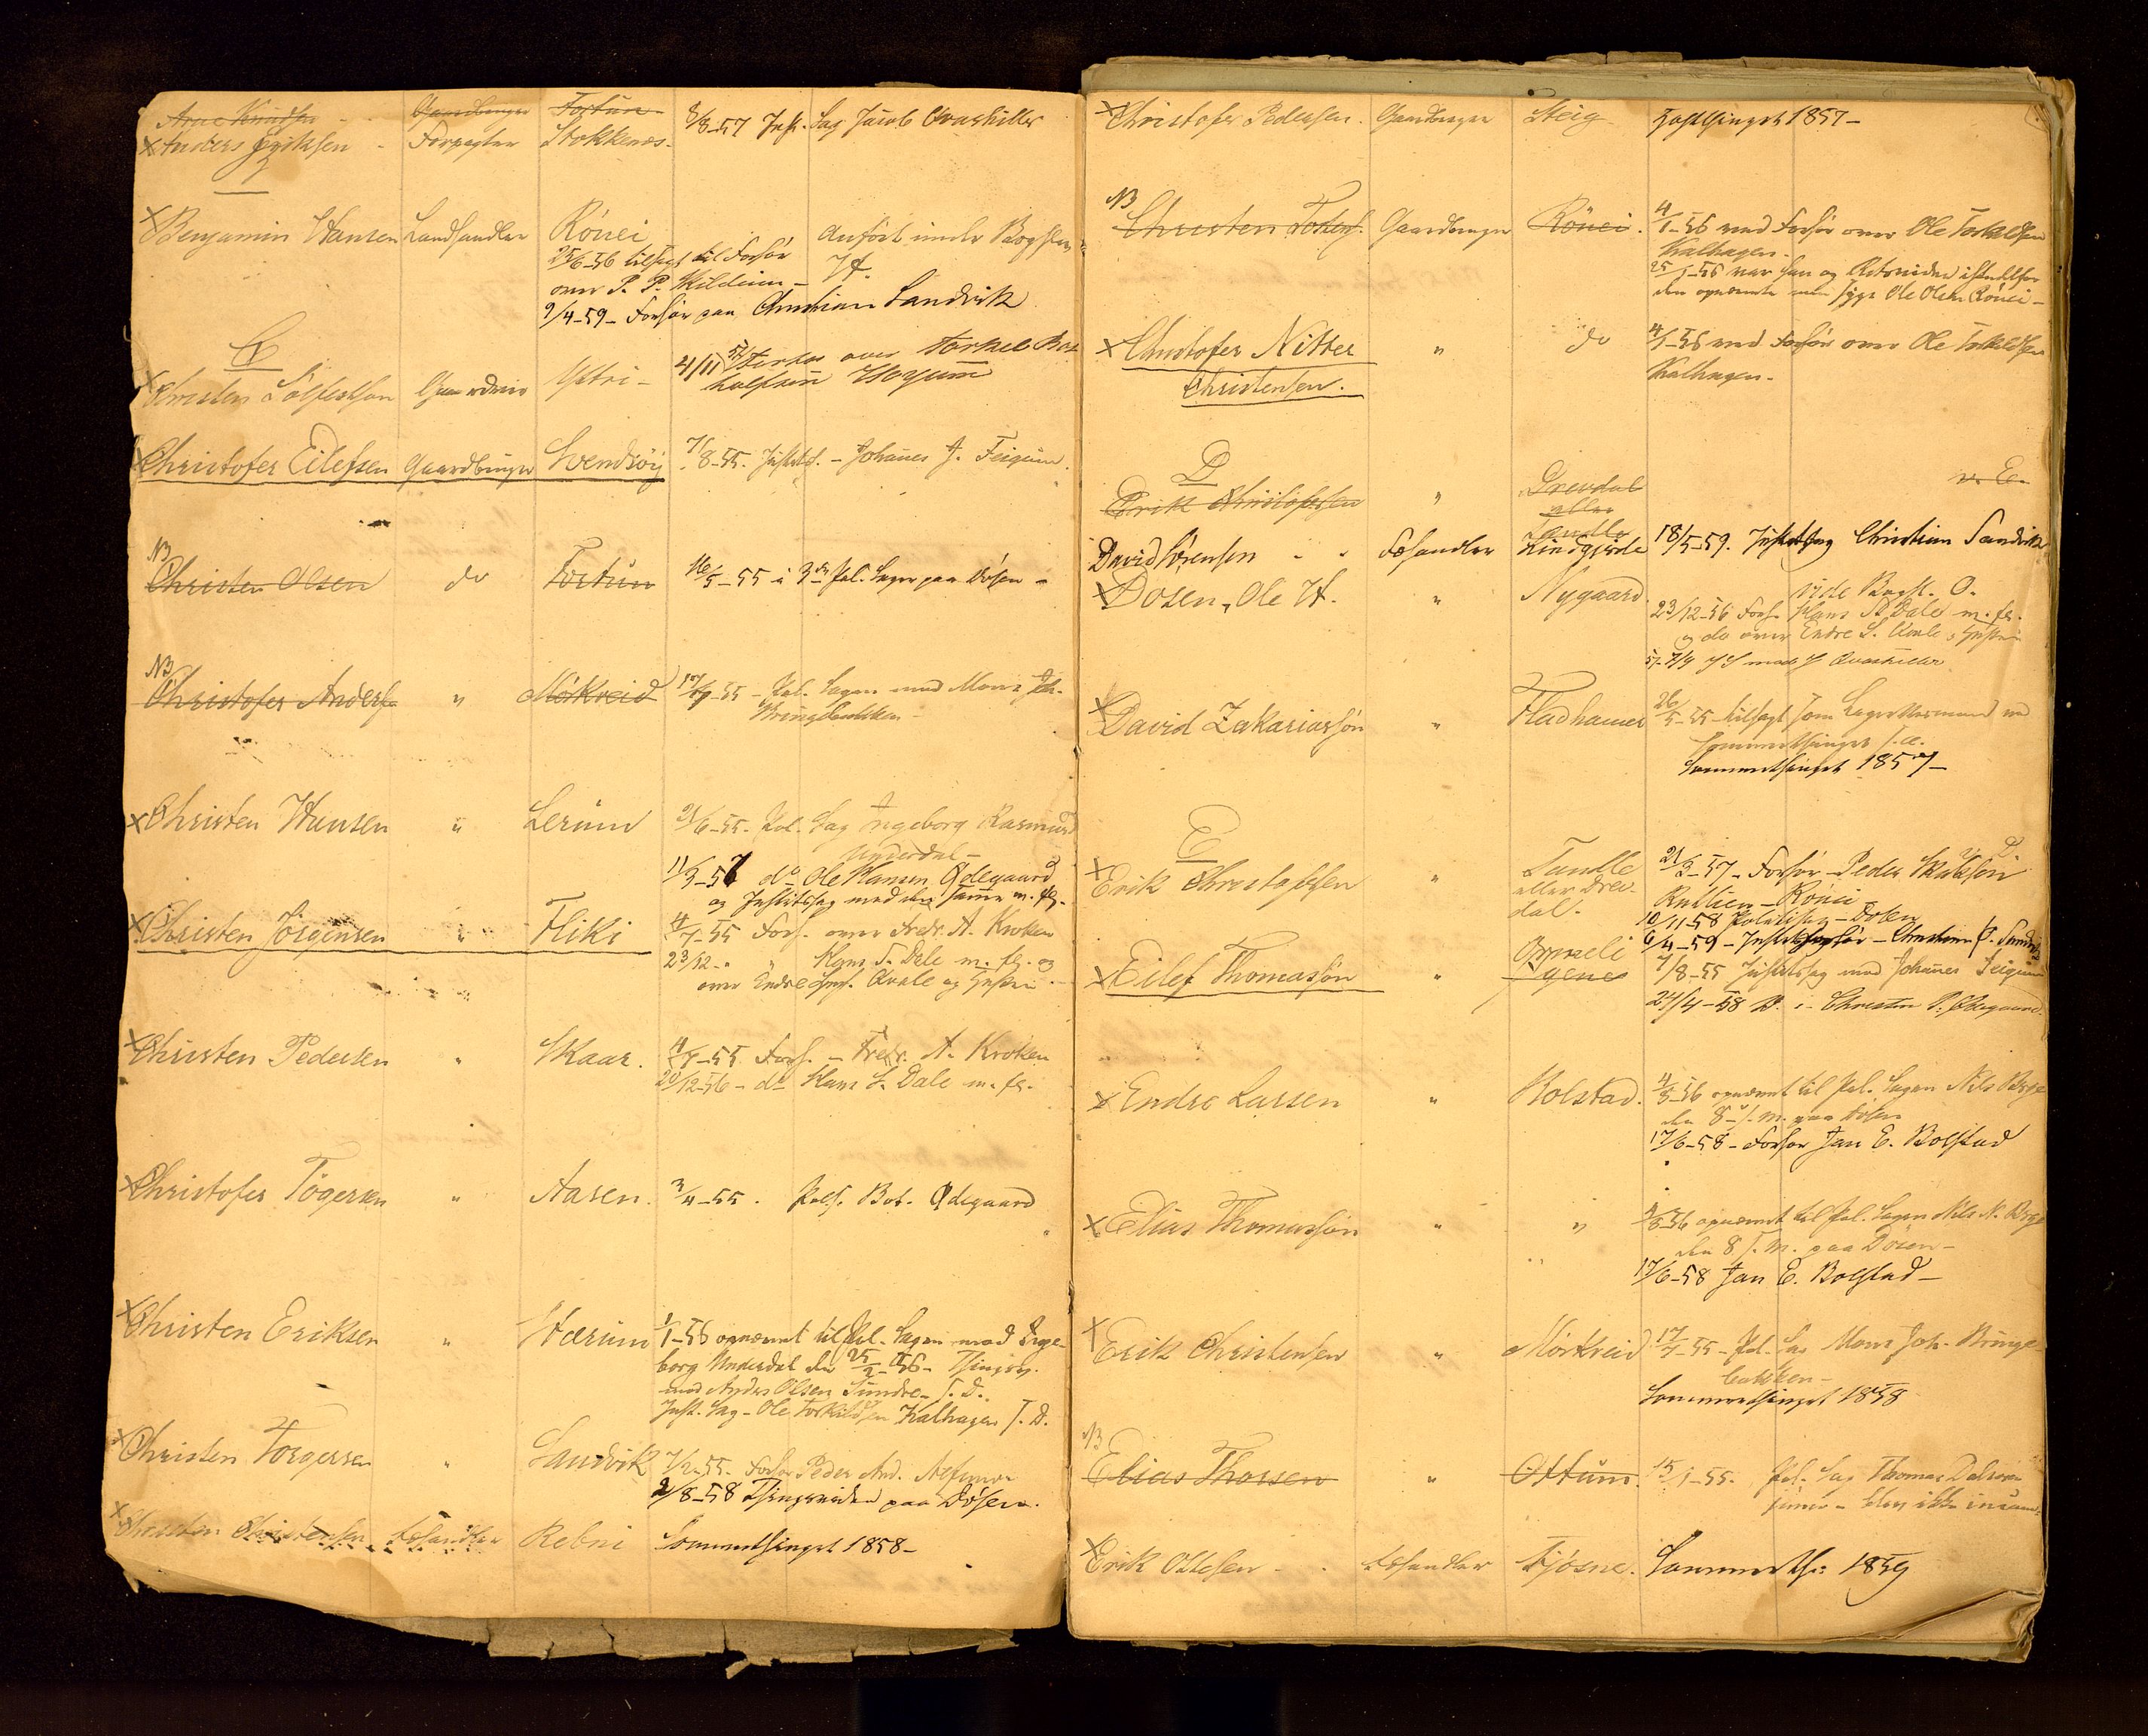 Arne Knudsen Gaardbruger Fortun
x Anders Eriksen - Forpagter Stokkenæs. 8/8-57 Just. Sag Jacob Ovrehiller
x Benjamin Hansen Landhandler Rönei Anfört under Bogstav
25/6-56 tilsagt til Forhör H.
over P. P. Kilderen
9/4-59 - Forhör paa Christian Sandvik
C
x Christen Sölfestsen Ystri - 4/11 57 Forhör over Torkel Bot-
holfsen Hoyum
x Christofer Eilefsen Gaardbruger Svendsöy 7/8-55. Justitss. - Johannes J. Feigum.
NB
Christen Olsen do Fortun 16/5-55 i 3de Pol. Sager paa Dösen -
NB
Christofer Anders. " Mörkreid 17/7-55 - Pol. Sagen mod Mons Joh.
Bringebakken -
x Christen Hansen " Lerum 21/6-55. Pol. Sag Ingeborg Rasmusd
Underdal -
11/3-57 do Ole Hansen Ødegaard
og Justitssag mod den samme m. fl.
x Christen Jörgensen " Fliki 4/7-55 Forh. over Fredr. A. Kroken
23/12 - " " Hans S. Dale m. fl. og
over Endre Kvale og Hustru
x Christen Pedersen " Skaar. 4/7-55 Forh. - Fredr. A. Kroken
20/12-56 - do Hans S. Dale m. fl.
x Christofer Tögersen " Aasen. 3/4-55. Pols. Bot. Ødegaard
x Christen Eriksen " Hærum 1/1-56 opnævnt til Pol. Sagen mod Inge-
borg Underdal den 25/2 56 - Thingsv.
mod Anders Olsen Sundre - s. D.
Just. Sag - Ole Torkildsen Kalhagen s. D.
x Christen Torgersen " Sandvik 7/12-55. Forhör Peder And.
2/8-58 Thingsvidne paa Dösen.
x Christen Christensen Løshandler Rebni Sommerthinget 1858 -
x Christofer Pedersen. Gaardbruger Steig Høstthinget 1857 -
NB
Christen Gaardbruger Rönei. 4/1-56 ved Forhör over Ole Torkildsen
Kalhagen.
25/1-56 var han og Retsvidne istedetfor
den opnævnte men syge Ole Olsen Rönei -
x Christofer Nitter " do 4/1-56 ved Forhör over Ole Torkildsen
Christensen. Kalhagen -
D
Erik Christofersen " Drevdal v. E.
eller
Tandle
David Sörensen - - Løshandler Lindgjerde 18/5-59. Justitssag Christian Sandvik
x Dosen, Ole H. " Nygaard. vide Bogst. O.
23/12-56 Forh. Hans S. Dale m. fl.
og do over Endre S. Kvale & Hustru
x David Zakariassön " Fladhamer 26/5-55 - tilsagt som Lagrettesmand ved
Sommerthinget s. A.
Sommerthinget 1857 -
E
x Erik Christofersen " Tandle 21/3-57 - Forhör - Peder
eller Drev- Rutlien - Rönei -
dal. 10/11-58 Politisag - Dosen
6/4-59 - Justitsforhör - Christian P. Sandvik
x Eilef Thomassön " Opheli 7/8-55 Justitssag mod Johannes Feigum
Ygnes 24/4-58 P. i - Christen P. Ødegaard.
x Endre Larsen " Bolstad. 4/3-56 opnævnt til Pol. Sagen Nils Berge
den 8de s. M. paa Dosen
17/6-58 - Forhör Jan E. Bolstad
x Elias Thomassön " " 4/3-56 opnævnt til Pol. Sagen Nils N. Berge
den 8 s. M. paa Dösen -
17/6-58 Jan E. Bolstad -
x Erik Christensen " Mörkreid 17/7-55 - Pol. Sag Mons Joh. Bringe-
bakken -
Sommerthinget 1858
NB
Elias Thorsen " Ottum. 15/1-55. Pol. Sag Thomas
- blev ikke
x Erik Ottesen - - Løshandler Kjösne. Sommerth: 1859